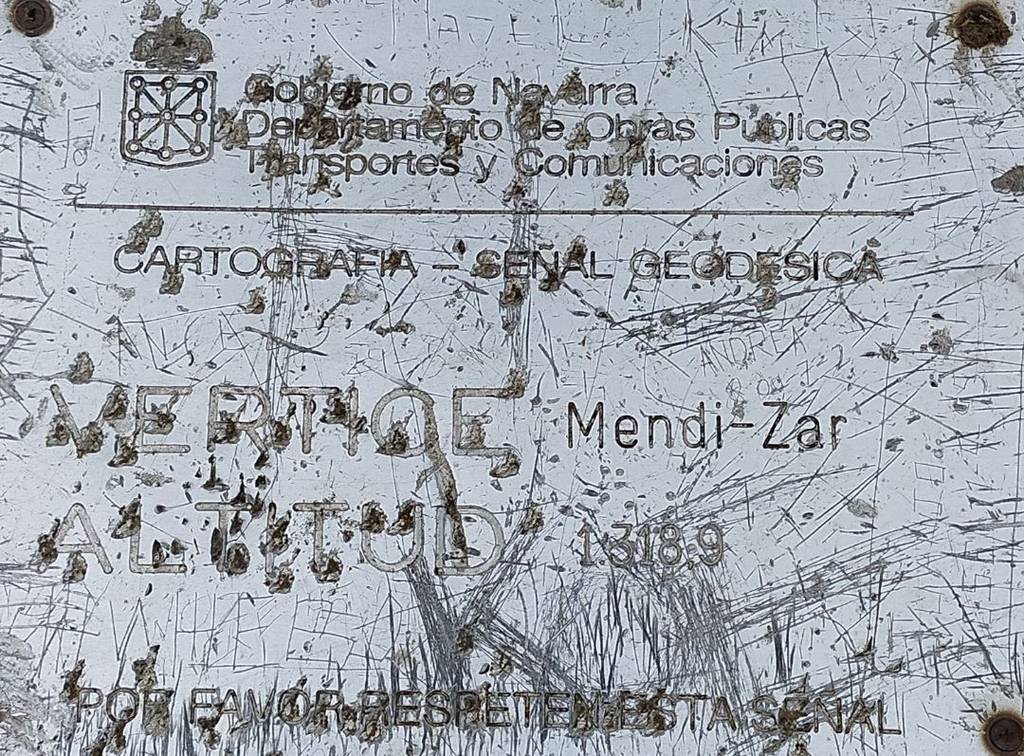 Gobierno de Navarra
Departamento de Obras Publicas
Transportes y Comunicaciones
CARTOGRAFIA - SEÑAL GEODESICA
ANDREA
VERTICE Mendi-Zar
ALTITUD 1.318,9
POR FAVOR RESPETEN ESTA SEÑAL